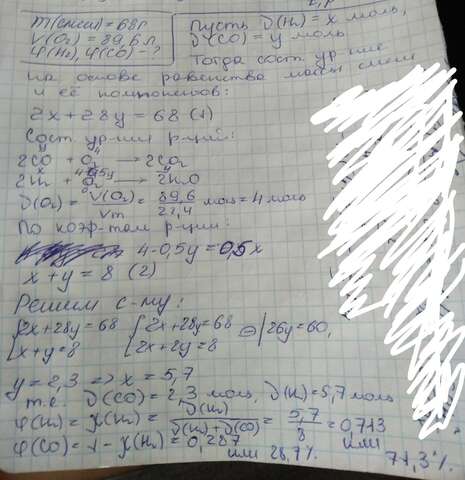 m(смеси) = 68г
V(O₂) = 89,6 л
φ(H₂), φ(CO) - ?
Пусть ν(H₂) = x моль,
ν(CO) = y моль
Тогда сост. ур-ние
на основе равенства массы смеси
и её компонентов:
2x + 28y = 68 (1)
Сост. ур-ния р-ций:
2CO + O₂ → 2CO₂
2H₂ + O₂ → 2H₂O
ν(O₂) = V(O₂)/Vm = 89,6/22,4 моль = 4 моль
По коэф-там р-ции:
4 - 0,5y = 0,5x
x + y = 8 (2)
Решим с-му:
{2x + 28y = 68 {2x + 28y = 68 ⊖ | 26y = 60,
{x + y = 8 {2x + 2y = 8
y = 2,3 => x = 5,7
т.е. ν(CO) = 2,3 моль, ν(H₂) = 5,7 моль
φ(H₂) = χ(H₂) = ν(H₂)/ν(H₂)+ν(CO) = 5,7/8 = 0,713
или 71,3%.
φ(CO) = 1 - χ(H₂) = 0,287
или 28,7%